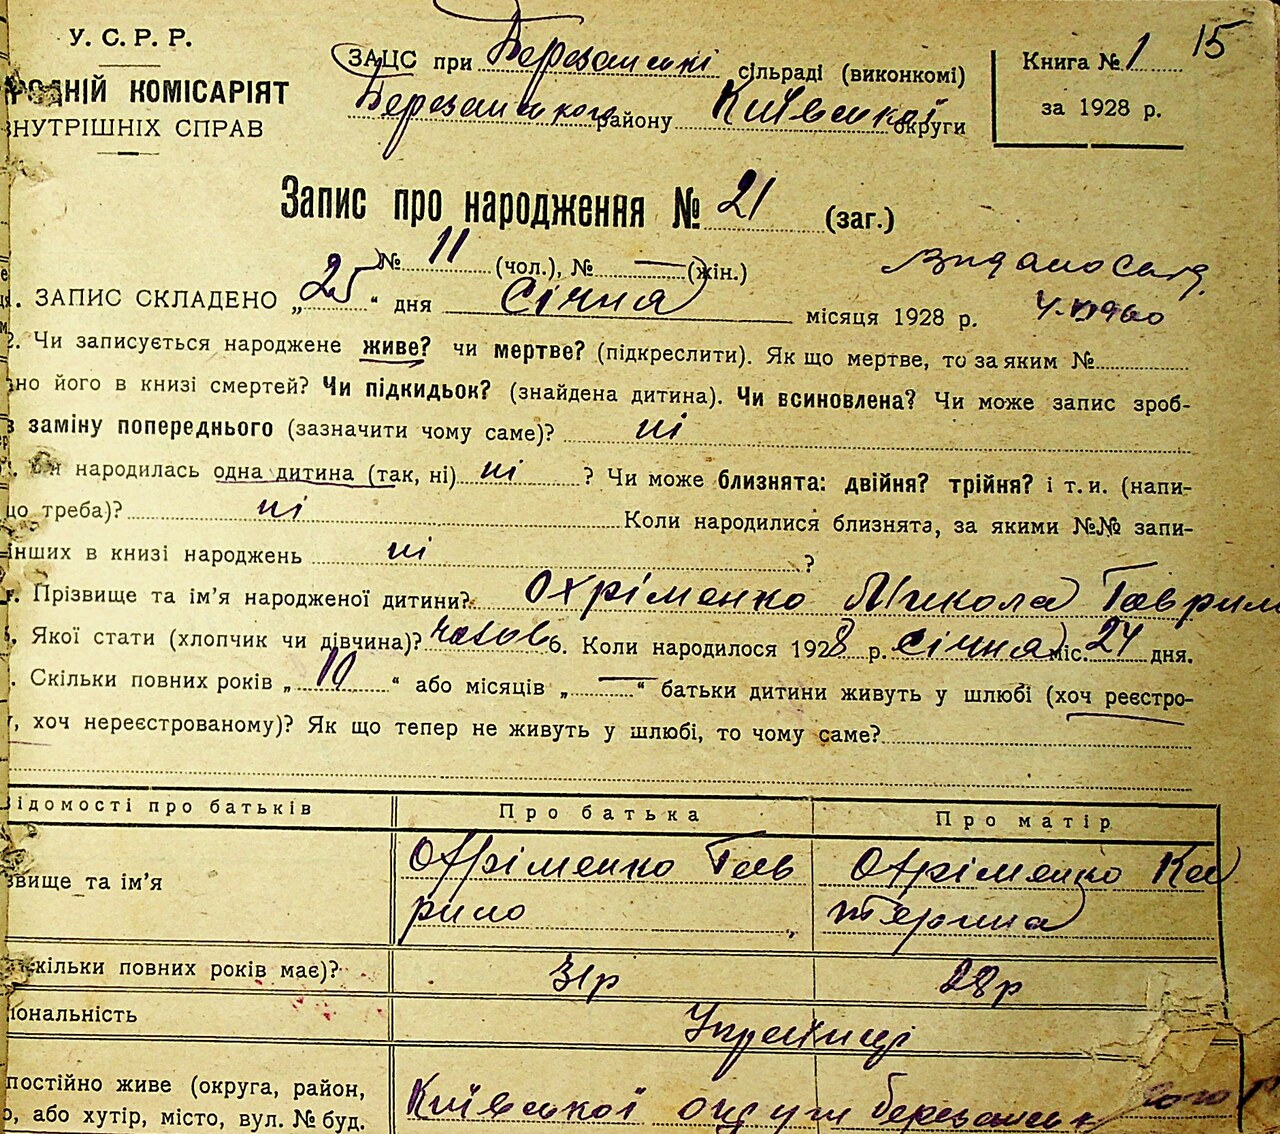 15
У. С. Р. Р.
РОДНІЙ КОМІСАРІЯТ
ВНУТРІШНІХ СПРАВ
ЗАЦС при Березанській сільраді (виконкомі)
Березанського району Київської округи
Книга № 1
за 1928 р.
Запис про народження № 21 (заг.)
№ 11 (чол.), № — (жін.)
1. ЗАПИС СКЛАДЕНО „25“ дня січня місяця 1928 р.
2. Чи записується народжене живе? чи мертве? (підкреслити). Як що мертве, то за яким №
но його в книзі смертей? Чи підкидьок? (знайдена дитина). Чи всиновлена? Чи може запис зроб-
в заміну попереднього (зазначити чому саме)? ні
народилась одна дитина (так, ні) ні ? Чи може близнята: двійня? трійня? і т. и. (напи-
що треба)? ні Коли народилися близнята, за якими №№ запи-
інших в книзі народжень ні ?
Прізвище та ім’я народженої дитини? Охріменко Микола Гаврил
Якої стати (хлопчик чи дівчина)? 6. Коли народилося 1928 р. січня міс. 24 дня.
Скільки повних років „10“ або місяців „—“ батьки дитини живуть у шлюбі (хоч реєстро-
, хоч нереєстрованому)? Як що тепер не живуть у шлюбі, то чому саме?
відомості про батьків Про батька Про матір
звище та ім’я Охріменко Гав Охріменко Ка
рило терина
скільки повних років має)? 31р 28р
іональність Українці
постійно живе (округа, район,
о, або хутір, місто, вул. № буд. Київської округи березанськ